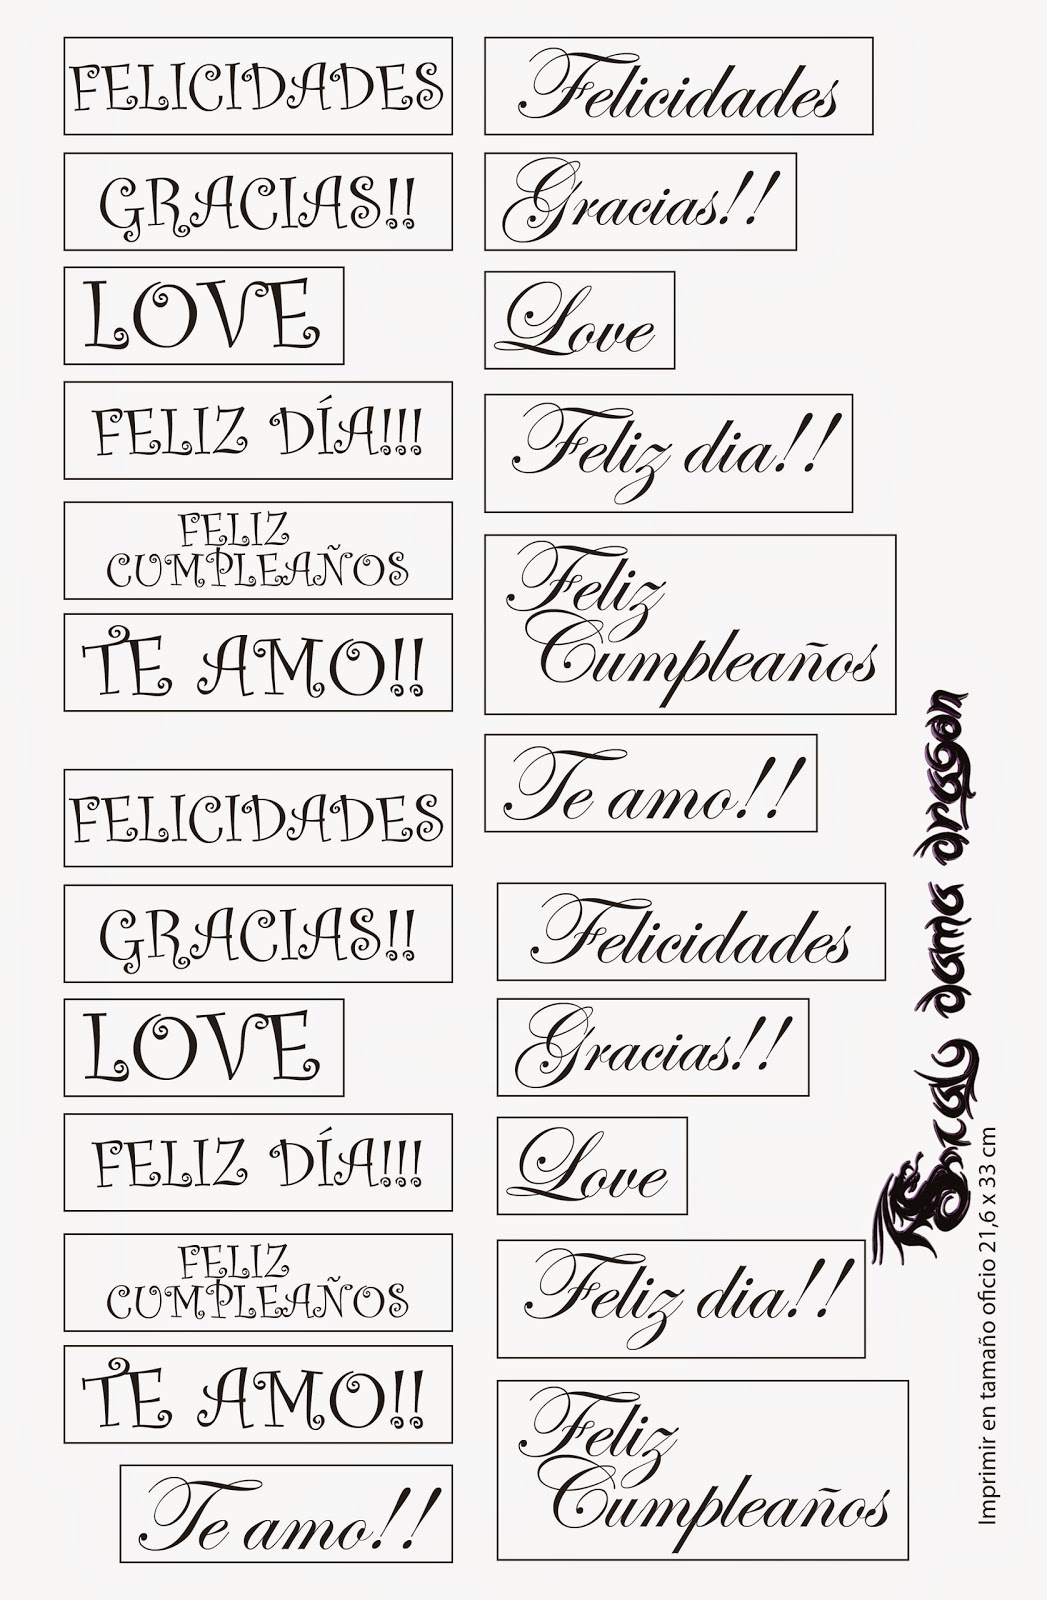 FELICIDADES
GRACIAS!!
LOVE
FELIZ DÍA!!!
FELIZ
CUMPLEAÑOS
TE AMO!!
FELICIDADES
GRACIAS!!
LOVE
FELIZ DÍA!!!
FELIZ
CUMPLEAÑOS
TE AMO!!
Te amo!!
Felicidades
Gracias!!
Love
Feliz dia!!
Feliz
Cumpleaños
Te amo!!
Felicidades
Gracias!!
Love
Feliz dia!!
Feliz
Cumpleaños
dama dragon
Imprimir en tamaño oficio 21,6 x 33 cm